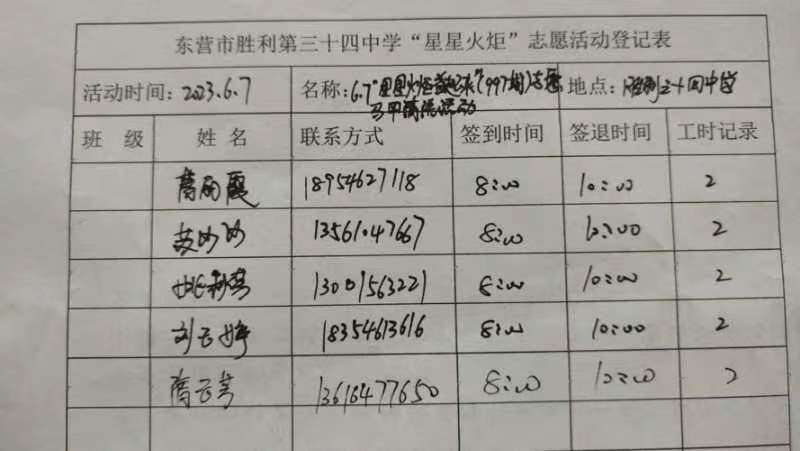 东营市胜利第三十四中学“星星火炬”志愿活动登记表
活动时间：2023.6.7 名称：6.7“星星火炬 (997期)志愿 地点：胜利三十四中学
马甲清洗活动
班 级 姓 名 联系方式 签到时间 签退时间 工时记录
18954627118 8:00 10:00 2
13561047667 8:00 10:00 2
姚利 13001563221 8:00 10:00 2
刘云婷 18354613616 8:00 10:00 2
13616477650 8:00 10:00 2